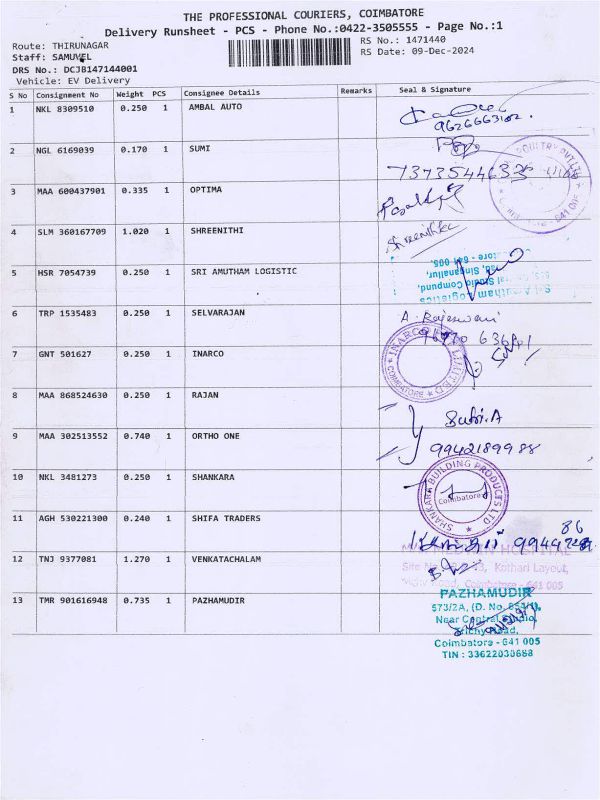 THE PROFESSIONAL COURIERS, COIMBATORE
Delivery Runsheet - PCS - Phone No.:0422-3505555 - Page No.:1
Route: THIRUNAGAR
RS No.: 1471440
Staff: SAMUVEL
RS Date: 09-Dec-2024
DRS No.: DCJB147144001
Vehicle: EV Delivery
S No Consignment No Weight PCS Consignee Details Remarks Seal & Signature
1 NKL 8309510 0.250 1 AMBAL AUTO
9626663102
2 NGL 6169039 0.170 1 SUMI
3 MAA 600437901 0.335 1 OPTIMA
4 SLM 360167709 1.020 1 SHREENITHI
Shreenithi
5 HSR 7054739 0.250 1 SRI AMUTHAM LOGISTIC
Sri Amutham Logistics
Studio Compund,
Singanallur,
641 005.
6 TRP 1535483 0.250 1 SELVARAJAN
A. Rajeswari
7 GNT 501627 0.250 1 INARCO
INARCO LIMITED
COIMBATORE
8 MAA 868524630 0.250 1 RAJAN
9 MAA 302513552 0.740 1 ORTHO ONE
9942189988
10 NKL 3481273 0.250 1 SHANKARA
SHANKARA BUILDING PRODUCTS LTD
Coimbatore
11 AGH 530221300 0.240 1 SHIFA TRADERS
HOSPITAL
Kothari Layout,
Coimbatore - 641 005
12 TNJ 9377081 1.270 1 VENKATACHALAM
13 TMR 901616948 0.735 1 PAZHAMUDIR
PAZHAMUDIR
573/2A, (D. No.
Near Central Studio,
Trichy Road,
Coimbatore - 641 005
TIN : 33622030688